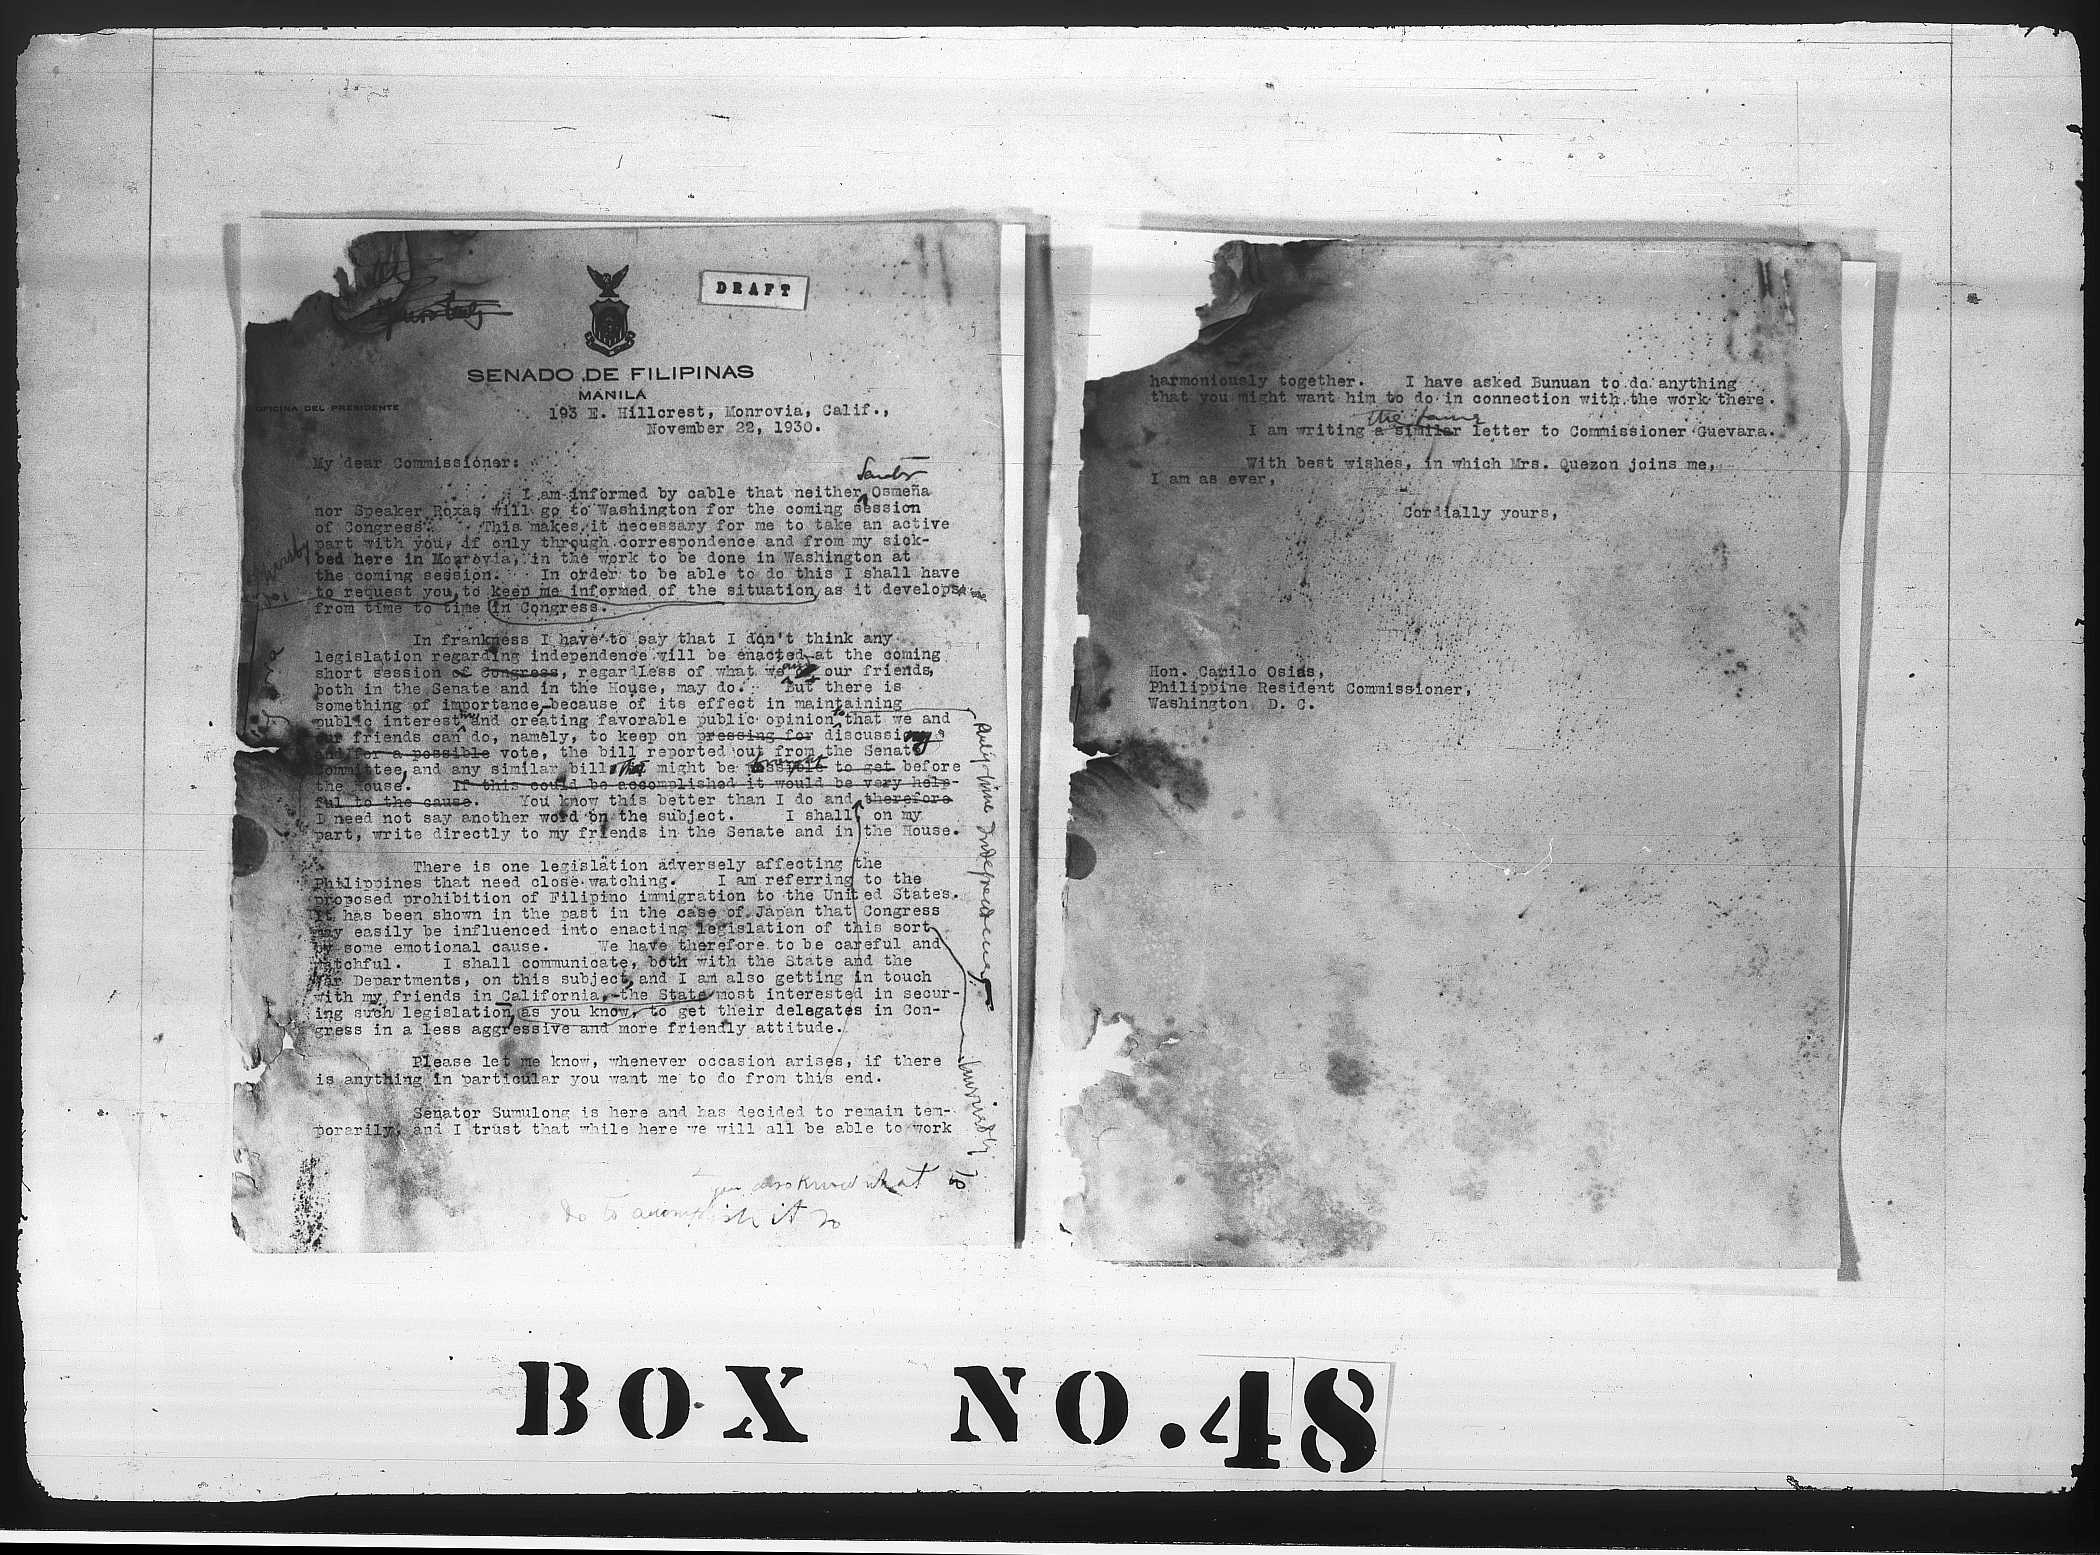 DRAFT
SENADO DE FILIPINAS
MANILA
OFICINA DEL PRESIDENTE
193 E. Hillcrest, Monrovia, Calif.,
November 22, 1930.
My dear Commissioner:
Senator
I am informed by cable that neither Osmeña
nor Speaker Roxas will go to Washington for the coming session
of Congress. This makes it necessary for me to take an active
part with you, if only through correspondence and from my sick-
bed here in Monrovia, in the work to be done in Washington at
the coming session. In order to be able to do this I shall have
to request you to keep me informed of the situation as it develops
from time to time in Congress.
In frankness I have to say that I don't think any
legislation regarding independence will be enacted at the coming
short session of Congress, regardless of what we and our friends,
both in the Senate and in the House, may do. But there is
something of importance because of its effect in maintaining
public interest and creating favorable public opinion that we and
our friends can do, namely, to keep on pressing for discussi
and for a possible vote, the bill reported out from the Senate
Committee, and any similar bill that might be possible to get before
brought
the House. If this could be accomplished it would be very help-
ful to the cause. You know this better than I do and therefore
I need not say another word on the subject. I shall, on my
part, write directly to my friends in the Senate and in the House.
There is one legislation adversely affecting the
Philippines that need close watching. I am referring to the
proposed prohibition of Filipino immigration to the United States.
It has been shown in the past in the case of Japan that Congress
may easily be influenced into enacting legislation of this sort
by some emotional cause. We have therefore to be careful and
watchful. I shall communicate, both with the State and the
War Departments, on this subject, and I am also getting in touch
with my friends in California, the State most interested in secur-
ing such legislation, as you know, to get their delegates in Con-
gress in a less aggressive and more friendly attitude.
Please let me know, whenever occasion arises, if there
is anything in particular you want me to do from this end.
Senator Sumulong is here and has decided to remain tem-
porarily, and I trust that while here we will all be able to work
you also know what to
do to accomplish it so
harmoniously together. I have asked Bunuan to do anything
that you might want him to do in connection with the work there.
the same
I am writing a similar letter to Commissioner Guevara.
With best wishes, in which Mrs. Quezon joins me,
I am as ever,
Cordially yours,
Hon. Camilo Osias,
Philippine Resident Commissioner,
Washington D. C.
BOX NO.48